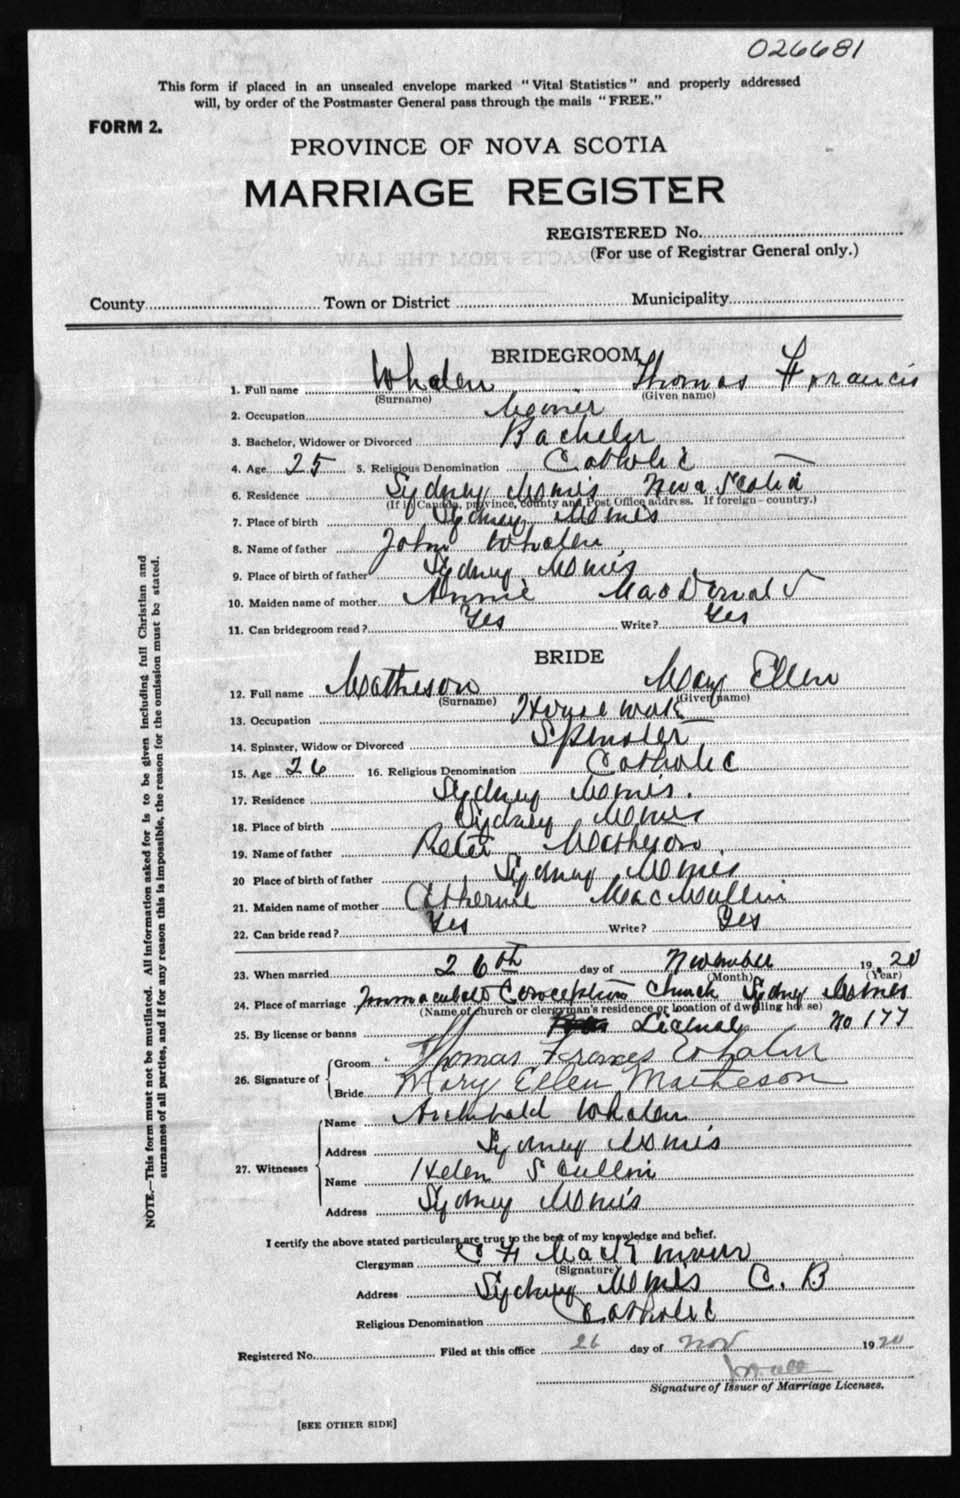 026681
This form if placed in an unsealed envelope marked "Vital Statistics" and properly addressed
will, by order of the Postmaster General pass through the mails "FREE."
FORM 2.
PROVINCE OF NOVA SCOTIA
MARRIAGE REGISTER
REGISTERED No.
(For use of Registrar General only.)
County Town or District Municipality
BRIDEGROOM
1. Full name Whalen Thomas Francis
(Surname) (Given name)
2. Occupation
3. Bachelor, Widower or Divorced Bachelor
4. Age 25 5. Religious Denomination Catholic
6. Residence Sydney Mines Nova Scotia
(If in Canada, province, county and Post Office address. If foreign - country.)
7. Place of birth Sydney Mines
8. Name of father John Whalen
9. Place of birth of father Sydney Mines
10. Maiden name of mother Annie MacDonald
11. Can bridegroom read? Yes Write? Yes
BRIDE
12. Full name Matheson Mary Ellen
(Surname) (Given name)
13. Occupation House work
14. Spinster, Widow or Divorced Spinster
15. Age 26 16. Religious Denomination Catholic
17. Residence Sydney Mines.
18. Place of birth Sydney Mines
19. Name of father Peter Matheson
20 Place of birth of father Sydney Mines
21. Maiden name of mother Catherine MacMullin
22. Can bride read? Yes Write? Yes
23. When married 26th day of November 1920
(Month) (Year)
24. Place of marriage Immaculate Conception Church Sydney Mines
(Name of church or clergyman's residence or location of dwelling house)
25. By license or banns No 177
26. Signature of Groom Thomas Frances Whalen
Bride Mary Ellen Matheson
27. Witnesses Name Archibald Whalen
Address Sydney Mines
Name Helen Scullin
Address Sydney Mines
I certify the above stated particulars are true to the best of my knowledge and belief.
Clergyman
(Signature)
Address Sydney Mines C. B
Religious Denomination Catholic
Registered No. Filed at this office 26 day of Nov 1920
Signature of Issuer of Marriage Licenses.
[SEE OTHER SIDE]
NOTE.—This form must not be mutilated. All information asked for is to be given including full Christian and
surnames of all parties, and if for any reason this is impossible, the reason for the omission must be stated.